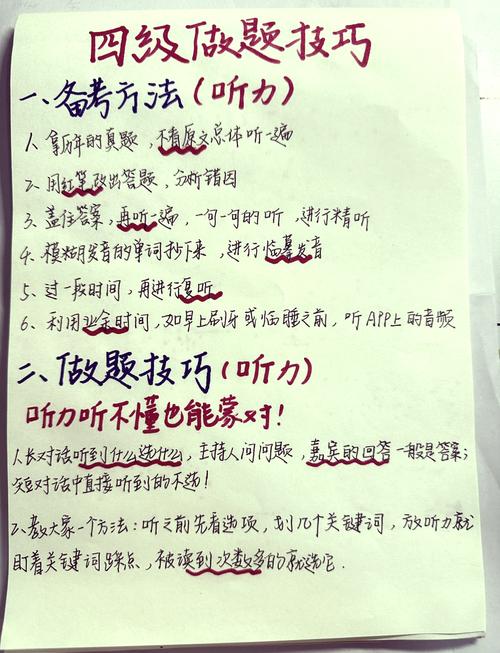 四级做题技巧
一、备考方法(听力)
1、拿历年的真题,不看原文总体听一遍
2、用红笔改出答题,分析错因
3、盖住答案,再听一遍,一句一句的听,进行精听
4、模糊发音的单词抄下来,进行临摹发音
5、过一段时间,再进行复听
6、利用业余时间,如早上刷牙或临睡之前,听APP上的音频
二、做题技巧(听力)
听力听不懂也能蒙对!
1、长对话听到什么选什么,主持人问问题,嘉宾的回答一般是答案;
短对话中直接听到的不选!
2、教大家一个方法:听之前先看选项,划几个关键词,放听力就
盯着关键词踩点,被读到次数多的就选它.